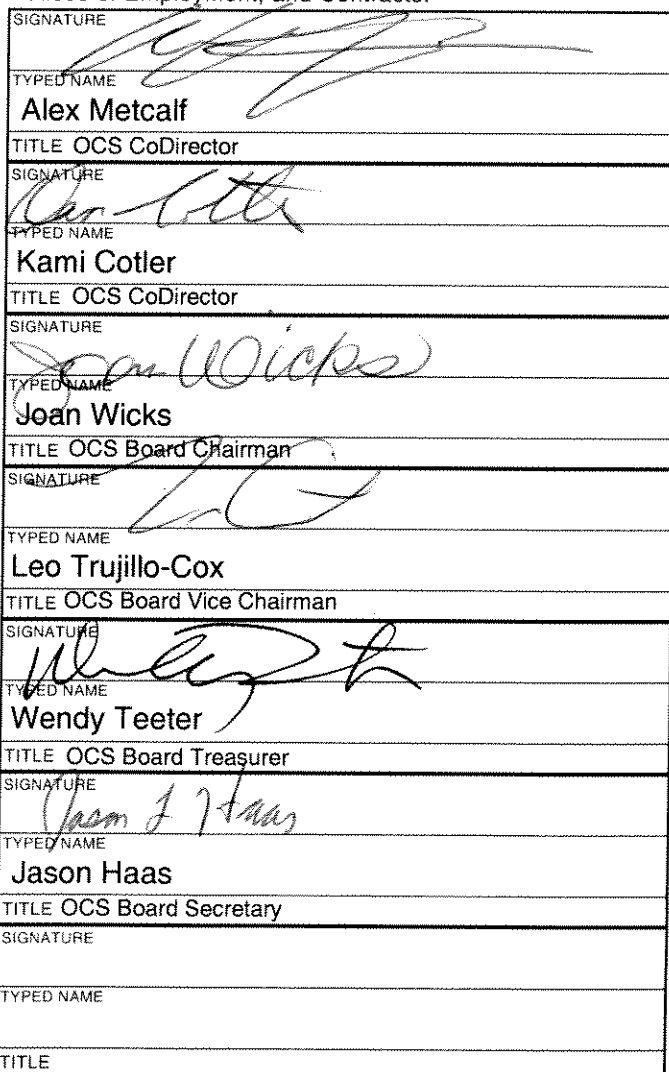 of Employment, and Contracts.
SIGNATURE
TYPED NAME
Alex Metcalf
TITLE OCS CoDirector
SIGNATURE
TYPED NAME
Kami Cotler
TITLE OCS CoDirector
SIGNATURE
Joan Wicks
TYPED NAME
Joan Wicks
TITLE OCS Board Chairman
SIGNATURE
TYPED NAME
Leo Trujillo-Cox
TITLE OCS Board Vice Chairman
SIGNATURE
TYPED NAME
Wendy Teeter
TITLE OCS Board Treasurer
SIGNATURE
Jason L Haas
TYPED NAME
Jason Haas
TITLE OCS Board Secretary
SIGNATURE
TYPED NAME
TITLE